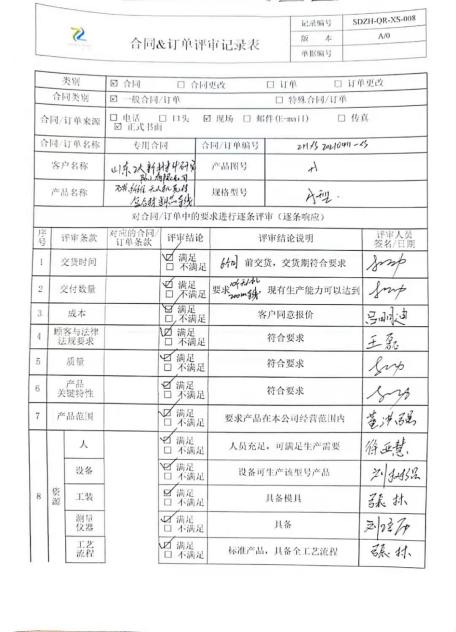 记录编号 SDZH-QR-XS-008
合同&订单评审记录表
版 本 A/0
单据编号
类别 ☑ 合同 □ 合同更改 □ 订单 □ 订单更改
合同类别 ☑ 一般合同/订单 □ 特殊合同/订单
合同/订单来源 □ 电话 □ 口头 ☑ 现场 □ 邮件(E-mail) □ 传真
☑ 正式书面
合同/订单名称 专用合同 合同/订单编号
客户名称 产品图号
产品名称 规格型号
对合同/订单中的要求进行逐条评审（逐条响应）
序号 评审条款 对应的合同/订单条款 评审结论 评审结论说明 评审人员签名/日期
1 交货时间 ☑ 满足 □ 不满足 前交货，交货期符合要求
2 交付数量 ☑ 满足 □ 不满足 要求 现有生产能力可以达到
3 成本 ☑ 满足 □ 不满足 客户同意报价
4 顾客与法律法规要求 ☑ 满足 □ 不满足 符合要求 王磊
5 质量 ☑ 满足 □ 不满足 符合要求
6 产品关键特性 ☑ 满足 □ 不满足 符合要求
7 产品范围 ☑ 满足 □ 不满足 要求产品在本公司经营范围内
8 资源 人 ☑ 满足 □ 不满足 人员充足，可满足生产需要 徐亚慧
设备 ☑ 满足 □ 不满足 设备可生产该型号产品
工装 ☑ 满足 □ 不满足 具备模具
测量仪器 ☑ 满足 □ 不满足 具备
工艺流程 ☑ 满足 □ 不满足 标准产品，具备全工艺流程